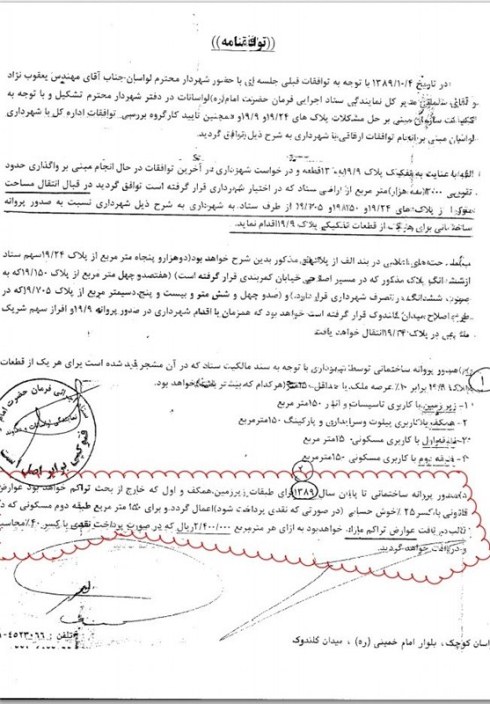 ((توافقنامه))
در تاریخ ۱۳۸۹/۱۰/۴ با توجه به توافقات قبلی جلسه ای با حضور شهردار محترم لواسان جناب آقای مهندس یعقوب نژاد
و آقای مدیر کل نمایندگی ستاد اجرایی فرمان حضرت امام (ره) لواسانات در دفتر شهردار محترم تشکیل و با توجه به
مبنی بر حل مشکلات پلاک های ۱۹/۲۴ و ۱۹/۹ و همچنین تایید کارگروه بررسی توافقات اداره کل با شهرداری
لواسان مبنی بر انجام توافقات ارفاقی با شهرداری به شرح ذیل توافق گردید.
الف) با عنایت به تفکیک پلاک ۱۹/۹ به قطعه و در خواست شهرداری در آخرین توافقات در حال انجام مبنی بر واگذاری حدود
هزار) متر مربع از اراضی ستاد که در اختیار شهرداری قرار گرفته است توافق گردید در قبال انتقال مساحت
از پلاک های ۱۹/۲۴ و و از طرف ستاد به شهرداری به شرح ذیل شهرداری نسبت به صدور پروانه
ساختمانی برای هر یک از قطعات تفکیکی پلاک ۱۹/۹ اقدام نماید.
در بند الف از پلاکهای مذکور بدین شرح خواهد بود (دوهزار و پنجاه متر مربع از پلاک ۱۹/۲۴ سهم ستاد
پلاک مذکور که در مسیر اصلاحی خیابان کمربندی قرار گرفته است) (هفتصد و چهل متر مربع از پلاک که به
تصرف شهرداری قرار دارد) و (صد و چهل و شش متر و بیست و پنج دسیمتر مربع از پلاک که در
طرح اصلاح میدان گلندوک قرار گرفته است خواهد بود که همزمان با اقدام شهرداری در صدور پروانه ۱۹/۹ و افراز سهم شریک
در پلاک ۱۹/۲۴ انتقال خواهد یافت
صدور پروانه ساختمانی توسط شهرداری با توجه به سند مالکیت ستاد که در آن مشجر قید شده است برای هر یک از قطعات
پلاک ۱۹/۹ برابر ۱۰٪ عرصه ملک یا حداقل (هرکدام که بیشتر باشد) خواهد بود.
۱- زیر زمین با کاربری تاسیسات و انبار ۱۵۰ متر مربع
۲- همکف با کاربری پیلوت وسرایداری و پارکینگ ۱۵۰ مترمربع
۳- طبقه اول با کاربری مسکونی ۱۵۰ متر مربع
۴- طبقه دوم با کاربری مسکونی ۱۵۰ مترمربع
۱
۲
صدور پروانه ساختمانی تا پایان سال ۱۳۸۹ برای طبقات زیرزمین، همکف و اول که خارج از بحث تراکم خواهد بود عوارض
قانونی با کسر ۲۵٪ خوش حسابی (در صورتی که نقدی پرداخت شود) اعمال گردد و برای ۱۵۰ متر مربع طبقه دوم مسکونی که در
دریافت عوارض تراکم مازاد خواهد بود به ازای هر مترمربع ۲/۴۰۰/۰۰۰ ریال که در صورت پرداخت نقدی با کسر ۴۰٪ محاسبه
و دریافت خواهد گردید.
لواسان کوچک، بلوار امام خمینی (ره) ، میدان گلندوک
تلفن